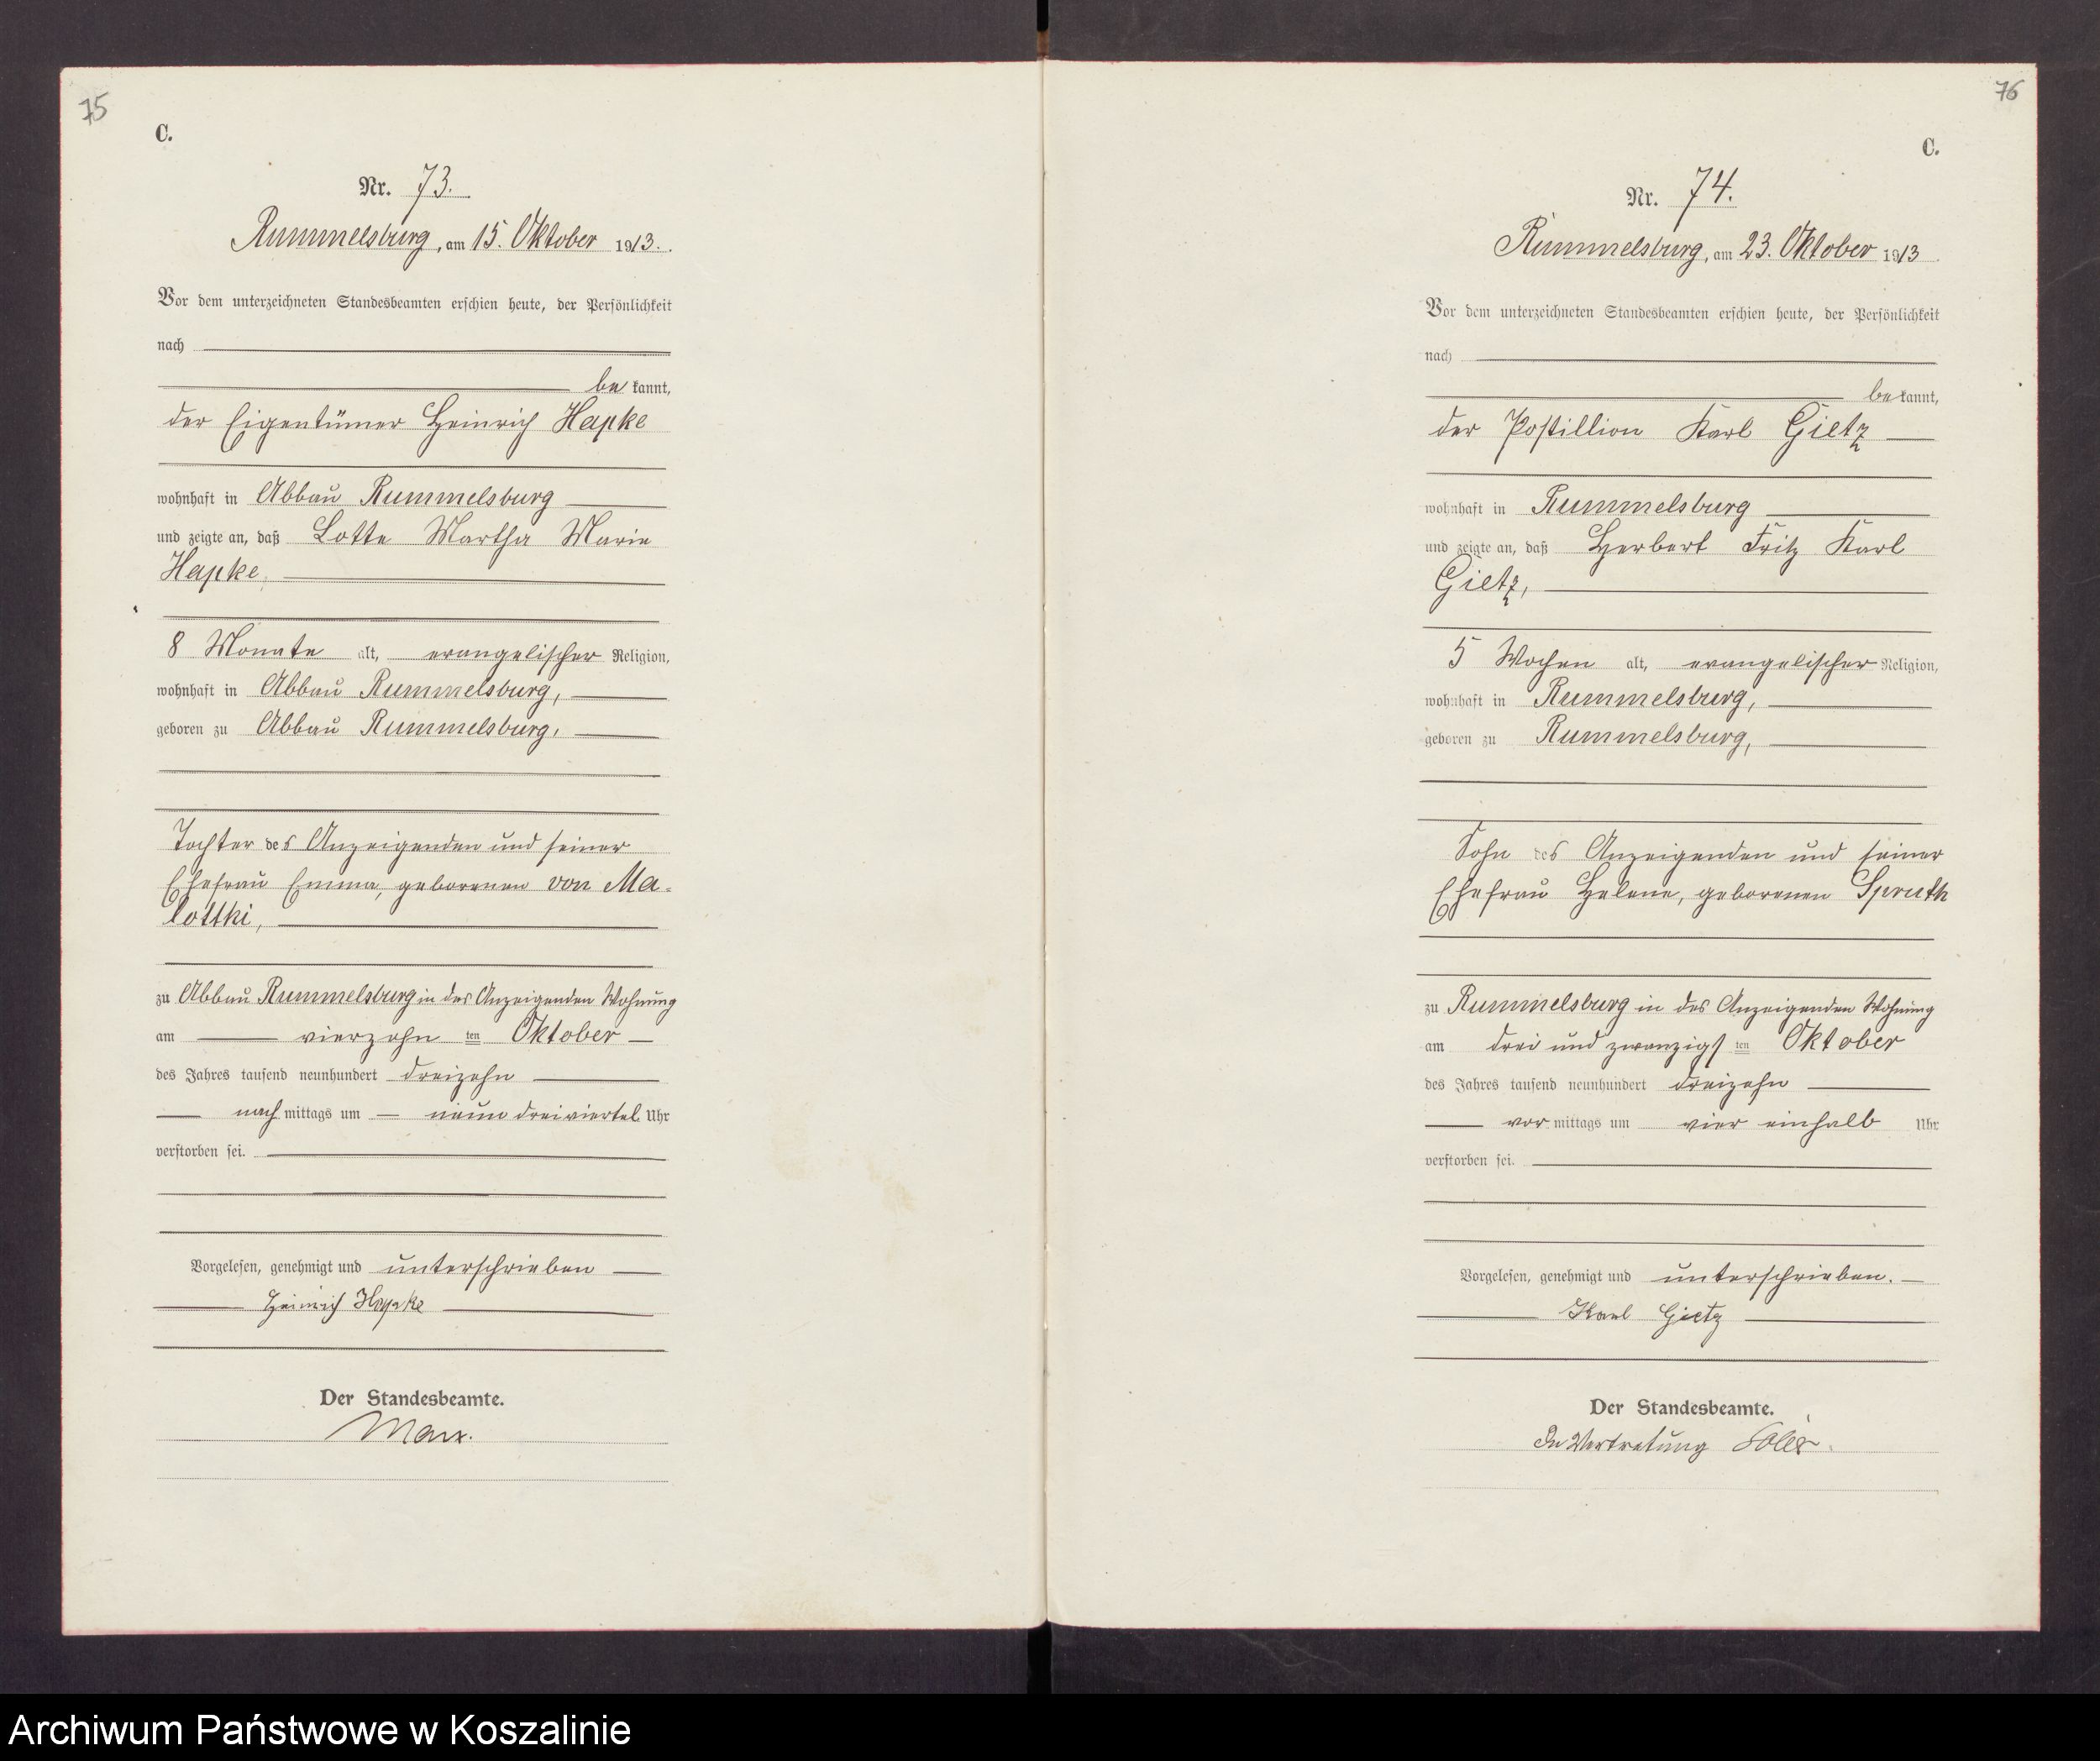 75
C.
Nr. 73.
Rummelsburg, am 15. Oktober 1913.
Vor dem unterzeichneten Standesbeamten erschien heute, der Persönlichkeit
nach
be kannt,
der Eigentümer Heinrich Hapke
wohnhaft in Abbau Rummelsburg
und zeigte an, daß Lotte Martha Marie
Hapke,
8 Monate alt, evangelischer Religion,
wohnhaft in Abbau Rummelsburg,
geboren zu Abbau Rummelsburg,
Tochter des Anzeigenden und seiner
Ehefrau Emma, geborenen von Ma-
lottki,
zu Abbau Rummelsburg in des Anzeigenden Wohnung
am vierzehn ten Oktober
des Jahres tausend neunhundert dreizehn
nach mittags um neun dreiviertel Uhr
verstorben sei.
Vorgelesen, genehmigt und unterschrieben
Heinrich Hapke
Der Standesbeamte.
Marx.
76
C.
Nr. 74.
Rummelsburg, am 23. Oktober 1913
Vor dem unterzeichneten Standesbeamten erschien heute, der Persönlichkeit
nach
be kannt,
der Postillion Karl Gietz
wohnhaft in Rummelsburg
und zeigte an, daß Herbert Fritz Karl
Gietz,
5 Wochen alt, evangelischer Religion,
wohnhaft in Rummelsburg,
geboren zu Rummelsburg,
Sohn des Anzeigenden und seiner
Ehefrau Helene, geborenen Spruth
zu Rummelsburg in des Anzeigenden Wohnung
am drei und zwanzigs ten Oktober
des Jahres tausend neunhundert dreizehn
vor mittags um vier einhalb Uhr
verstorben sei.
Vorgelesen, genehmigt und unterschrieben.
Karl Gietz
Der Standesbeamte.
In Vertretung
Archiwum Państwowe w Koszalinie